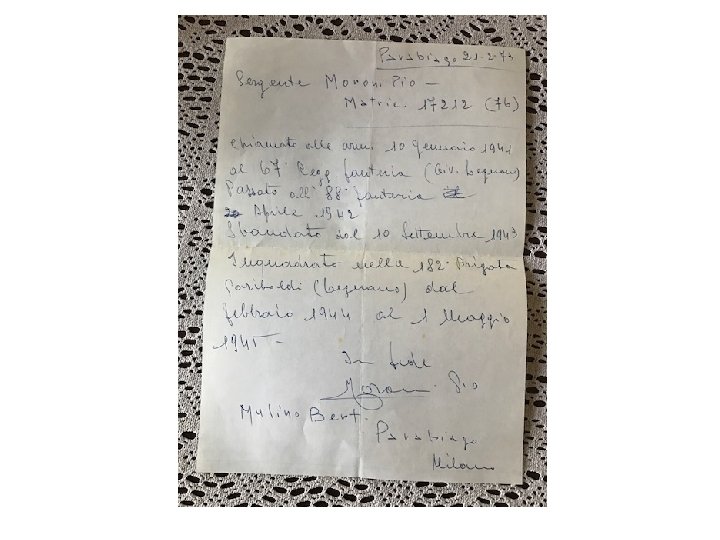 Parabiago 21-2-74
Sergente Moroni Pio -
Matric. 17212 (76)
Chiamato alle armi 10 gennaio 1941
al 67° Regg fanteria (Civ. Legnano)
Passato all' 88° fanteria
Aprile 1942
Sbandato dal 10 Settembre 1943
Inquadrato nella 182° Brigata
Garibaldi (Legnano) dal
febbraio 1944 al 1 Maggio
1945 -
In fede
Moroni Pio
Mulino Bert.
Parabiago
Milano